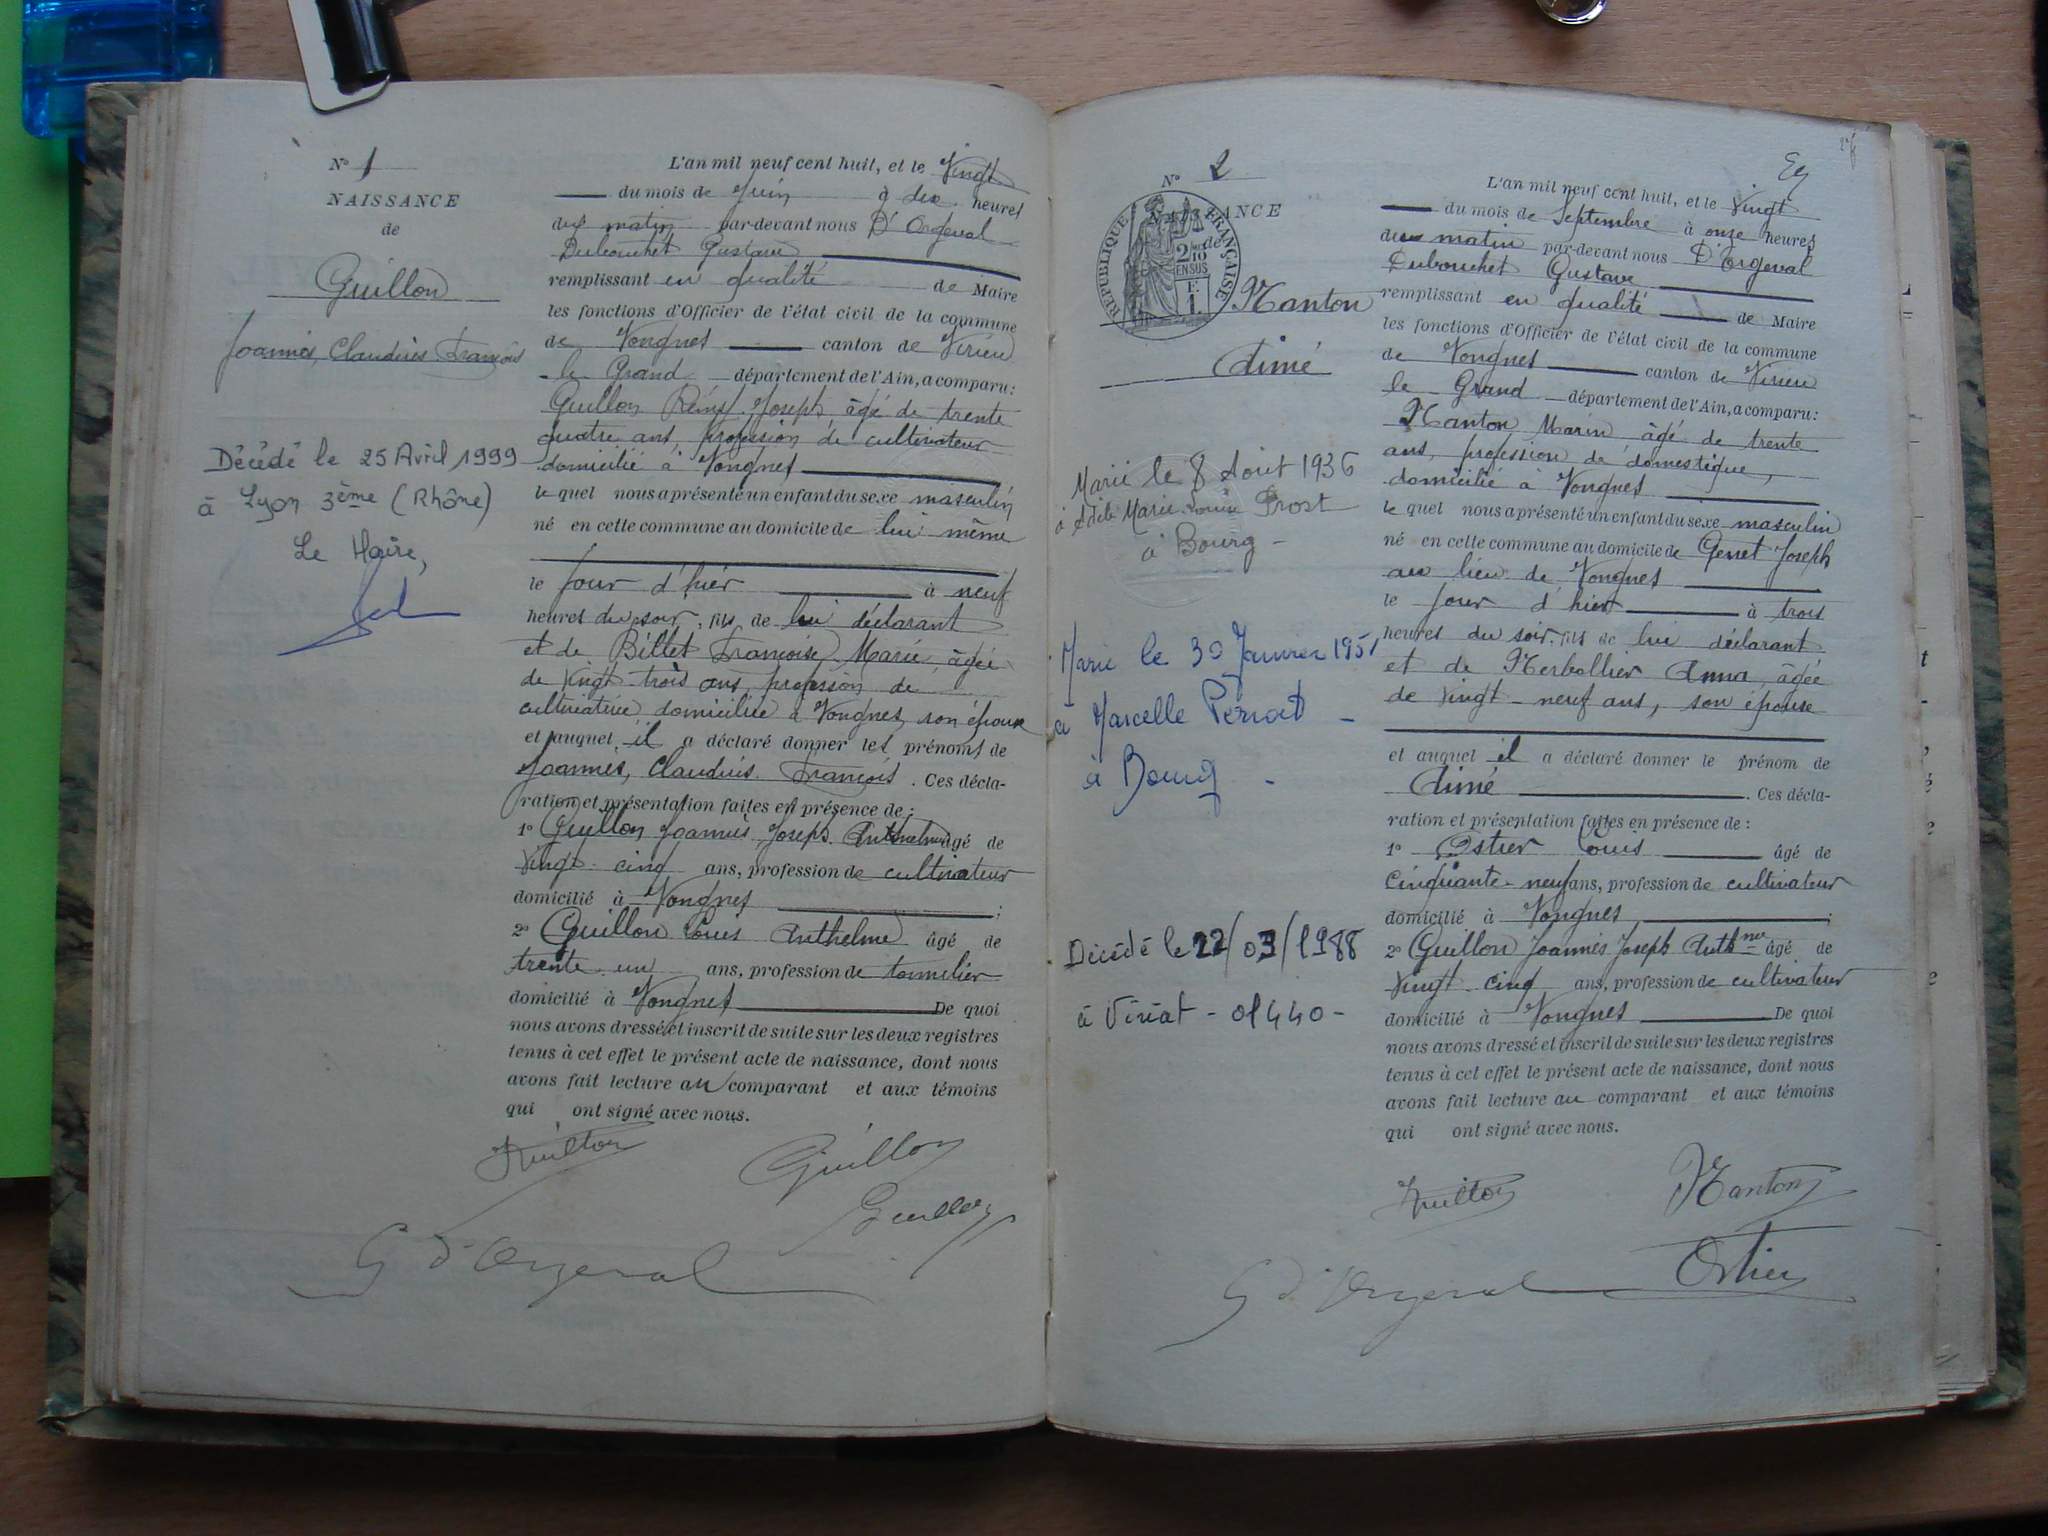 N° 1
NAISSANCE
de
Guillon
Joannès, Claudius François
Décédé le 25 Avril 1999
à Lyon 3ème (Rhône)
Le Maire,
L'an mil neuf cent huit, et le Vingt
du mois de Juin à dix heures
du matin par-devant nous D'Orgeval
Dubouchet Gustave
remplissant en qualité de Maire
les fonctions d'Officier de l'état civil de la commune
de Vongnes canton de Virieu
le Grand département de l'Ain, a comparu:
Guillon Rémy Joseph âgé de trente
quatre ans, profession de cultivateur
domicilié à Vongnes
le quel nous a présenté un enfant du sexe masculin
né en cette commune au domicile de lui même
le jour d'hier à neuf
heures du soir, fils de lui déclarant
et de Billet Françoise Marie, âgée
de vingt trois ans profession de
cultivatrice domiciliée à Vongnes, son épouse
et auquel il a déclaré donner les prénoms de
Joannès, Claudius François. Ces décla-
ration et présentation faites en présence de:
1° Guillon Joannès Joseph Anthelme âgé de
Vingt-cinq ans, profession de cultivateur
domicilié à Vongnes ;
2° Guillon Louis Anthelme âgé de
trente un ans, profession de tonnelier
domicilié à Vongnes De quoi
nous avons dressé et inscrit de suite sur les deux registres
tenus à cet effet le présent acte de naissance, dont nous
avons fait lecture au comparant et aux témoins
qui ont signé avec nous.
Guillon Guillon
Guillon
G d'Orgeval
N° 2
NAISSANCE
de
RÉPUBLIQUE FRANÇAISE
2/10
EN SUS
F.
1.
Nanton
Aimé
Marié le 8 Août 1936
à Marie Louise Prost
à Bourg -
Marié le 30 Janvier 1951
à Marcelle
à Bourg -
Décédé le 22/03/1988
à Viriat - 01440 -
L'an mil neuf cent huit, et le Vingt
du mois de Septembre à onze heures
du matin par-devant nous D'Orgeval
Dubouchet Gustave
remplissant en qualité de Maire
les fonctions d'Officier de l'état civil de la commune
de Vongnes canton de Virieu
le Grand département de l'Ain, a comparu:
Nanton Marin âgé de trente
ans, profession de domestique,
domicilié à Vongnes
le quel nous a présenté un enfant du sexe masculin
né en cette commune au domicile de Genet Joseph
au lieu de Vongnes
le jour d'hier à trois
heures du soir, fils de lui déclarant
et de Anna, âgée
de vingt-neuf ans, son épouse
et auquel il a déclaré donner le prénom de
Aimé. Ces décla-
ration et présentation faites en présence de:
1° Ostier Louis âgé de
Cinquante-neuf ans, profession de cultivateur
domicilié à Vongnes ;
2° Guillon Joannès Joseph Anthme âgé de
Vingt-cinq ans, profession de cultivateur
domicilié à Vongnes De quoi
nous avons dressé et inscrit de suite sur les deux registres
tenus à cet effet le présent acte de naissance, dont nous
avons fait lecture au comparant et aux témoins
qui ont signé avec nous.
Guillon Nanton
Ostier
G d'Orgeval